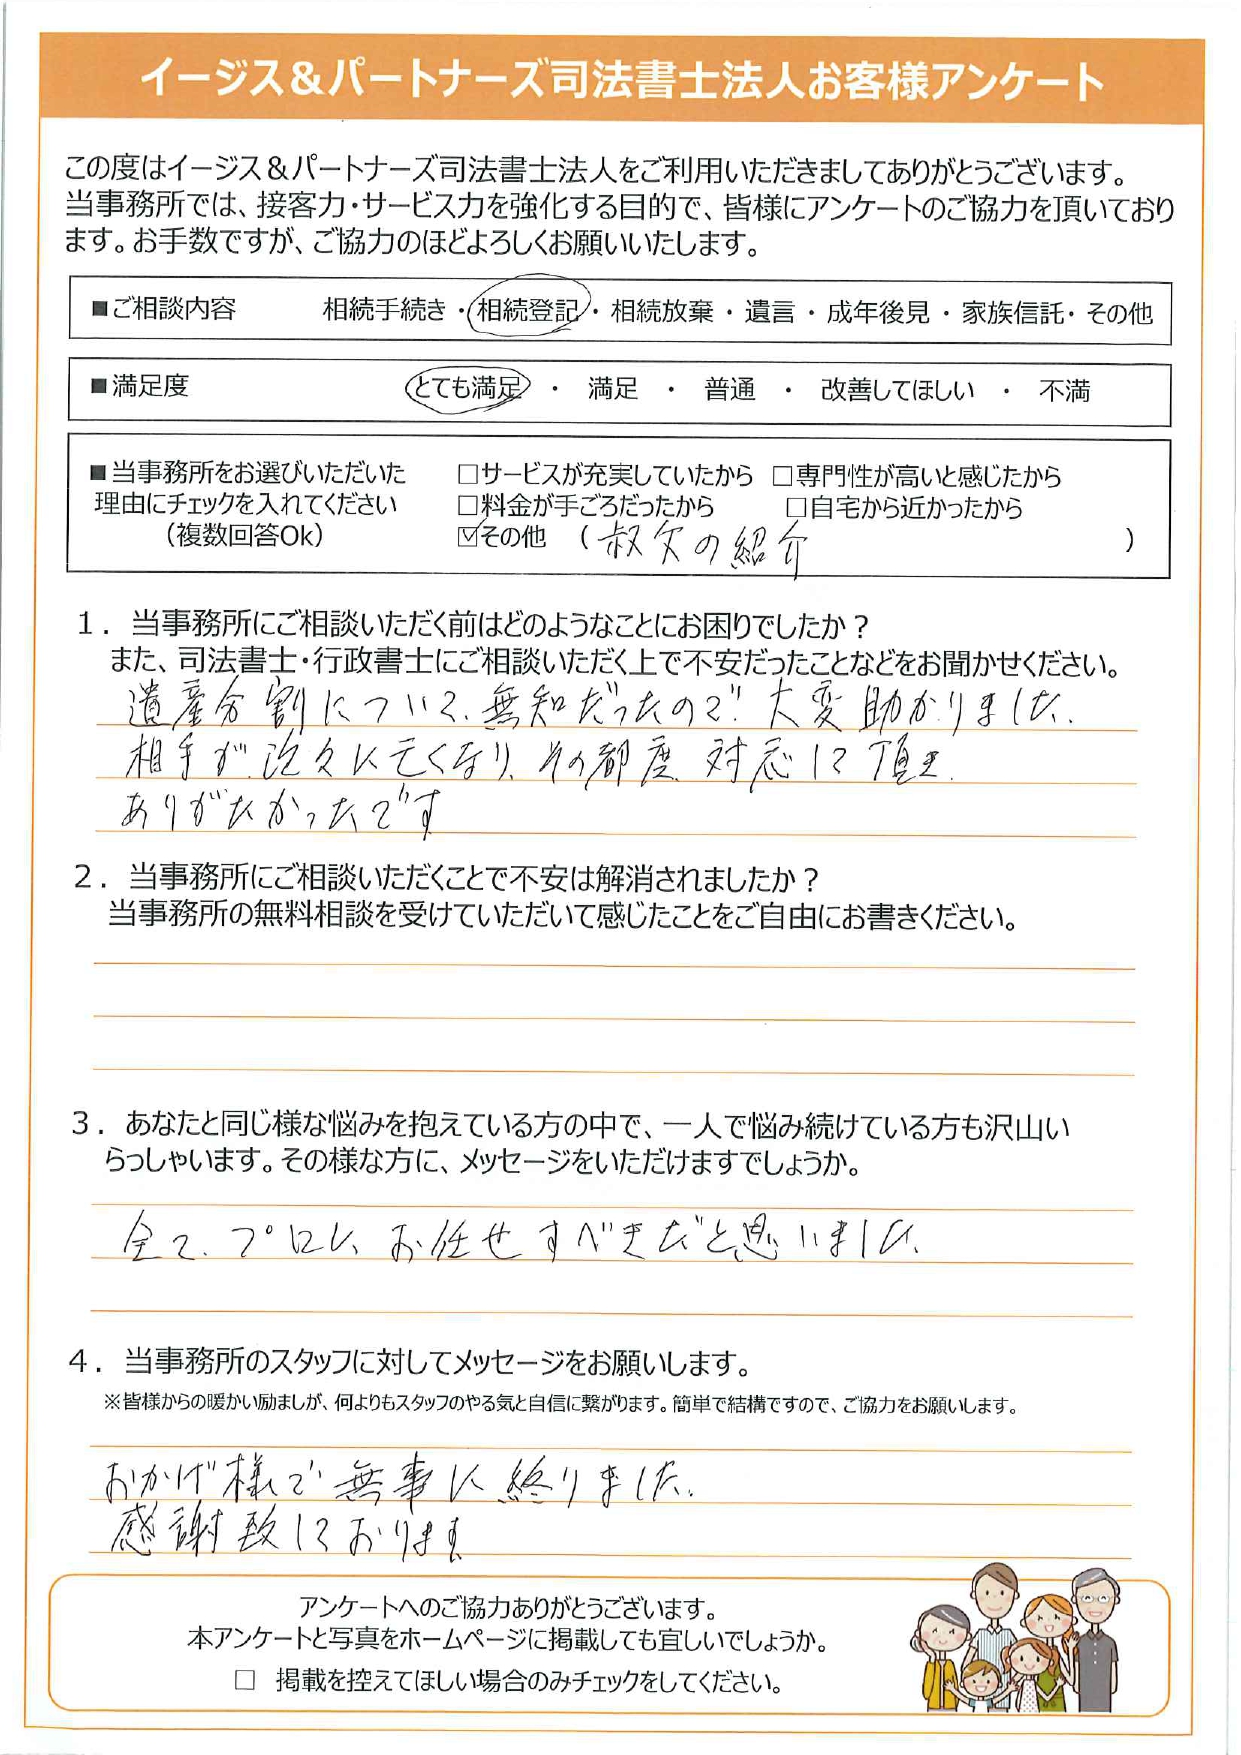 イージス＆パートナーズ司法書士法人お客様アンケート
この度はイージス＆パートナーズ司法書士法人をご利用いただきましてありがとうございます。
当事務所では、接客力・サービス力を強化する目的で、皆様にアンケートのご協力を頂いており
ます。お手数ですが、ご協力のほどよろしくお願いいたします。
■ご相談内容 相続手続き・相続登記・相続放棄・遺言・成年後見・家族信託・その他
■満足度 とても満足・満足・普通・改善してほしい・不満
■当事務所をお選びいただいた □サービスが充実していたから □専門性が高いと感じたから
理由にチェックを入れてください □料金が手ごろだったから □自宅から近かったから
（複数回答Ok） ☑その他 （叔父の紹介）
１．当事務所にご相談いただく前はどのようなことにお困りでしたか？
また、司法書士・行政書士にご相談いただく上で不安だったことなどをお聞かせください。
遺産分割について、無知だったので、大変助かりました。
相手が次々に亡くなり、その都度対応して頂き
ありがたかったです
２．当事務所にご相談いただくことで不安は解消されましたか？
当事務所の無料相談を受けていただいて感じたことをご自由にお書きください。
３．あなたと同じ様な悩みを抱えている方の中で、一人で悩み続けている方も沢山い
らっしゃいます。その様な方に、メッセージをいただけますでしょうか。
全て、プロに、お任せすべきだと思いました。
４．当事務所のスタッフに対してメッセージをお願いします。
※皆様からの暖かい励ましが、何よりもスタッフのやる気と自信に繋がります。簡単で結構ですので、ご協力をお願いします。
おかげ様で無事に終りました。
感謝致しております
アンケートへのご協力ありがとうございます。
本アンケートと写真をホームページに掲載しても宜しいでしょうか。
□ 掲載を控えてほしい場合のみチェックをしてください。